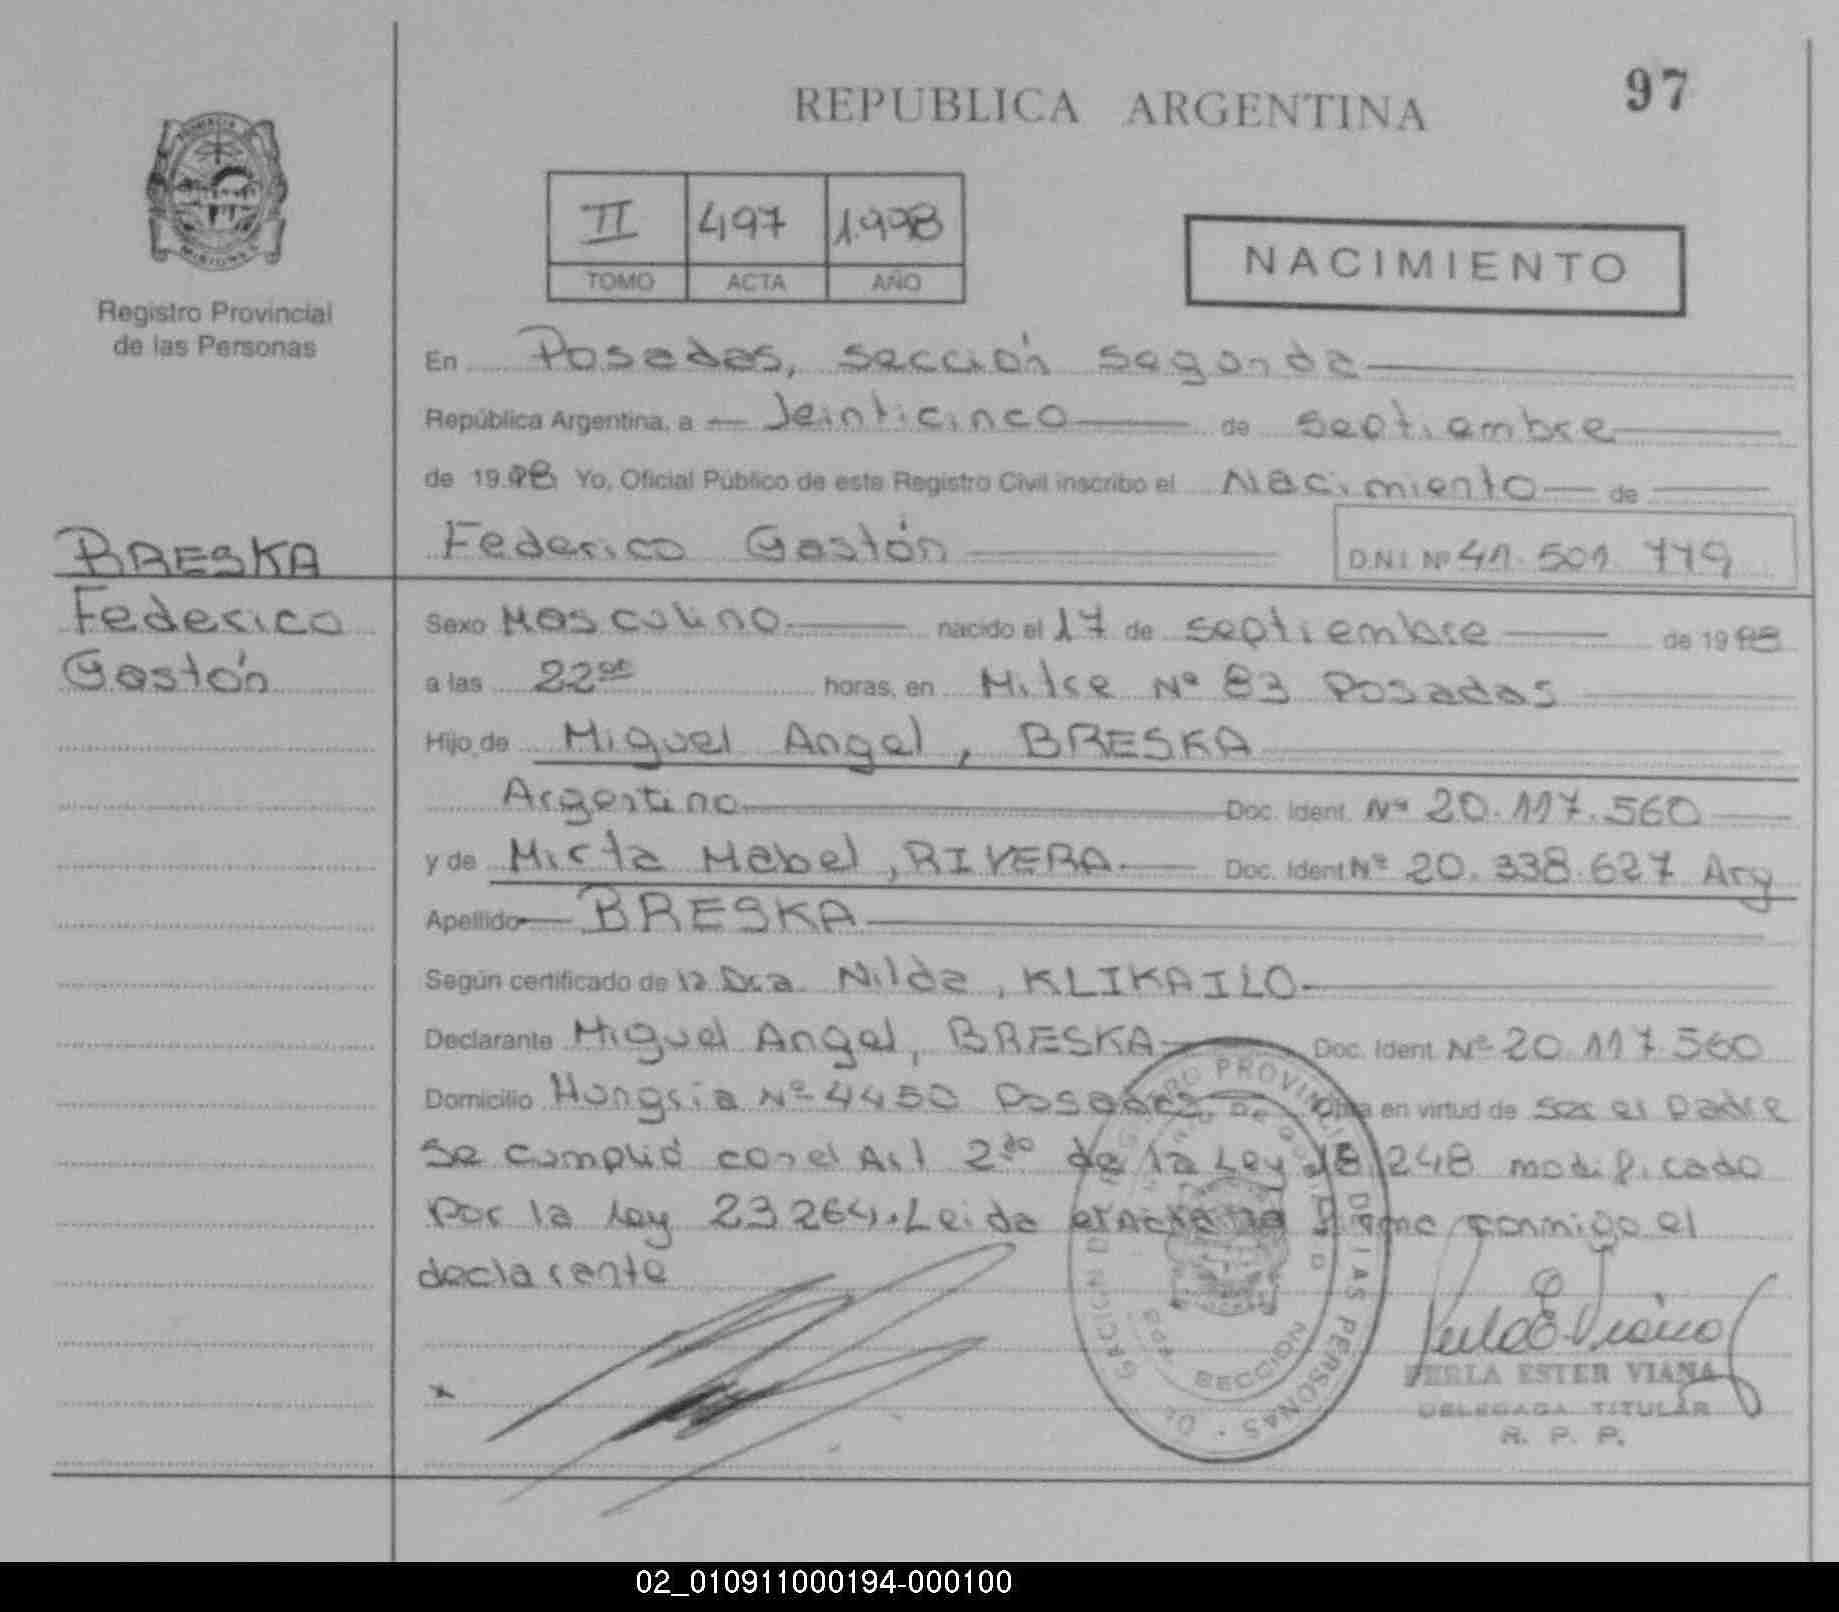 97
REPUBLICA ARGENTINA
II 497 1.998
TOMO ACTA AÑO
NACIMIENTO
Registro Provincial
de las Personas
En Posadas, sección segunda
República Argentina, a Veinticinco de septiembre
de 19.98 Yo, Oficial Público de este Registro Civil inscribo el Nacimiento de
BRESKA
Federico Gastón D.N.I. Nº 41.501.779
Federico
Gastón
Sexo Masculino nacido el 17 de septiembre de 1998
a las 22 horas, en Mitre Nº 83 Posadas
Hijo de Miguel Angel, BRESKA
Argentino Doc. Ident. Nº 20.117.560
y de Mirta Mabel, RIVERA Doc. Ident Nº 20.338.627 Arg
Apellido BRESKA
Según certificado de la Dra. Nilda, KLIKAILO
Declarante Miguel Angel, BRESKA Doc. Ident. Nº 20.117.560
Domicilio Hungria Nº 4450 Posadas en virtud de ser el padre
Se cumplió con el Art 2do de la Ley 18.248 modificado
por la ley 23264. Leida el acta la firma conmigo el
declarante
REGISTRO PROVINCIAL DE LAS PERSONAS
SECCION
x
PERLA ESTER VIANA
DELEGADA TITULAR
R. P. P.
02_010911000194-000100